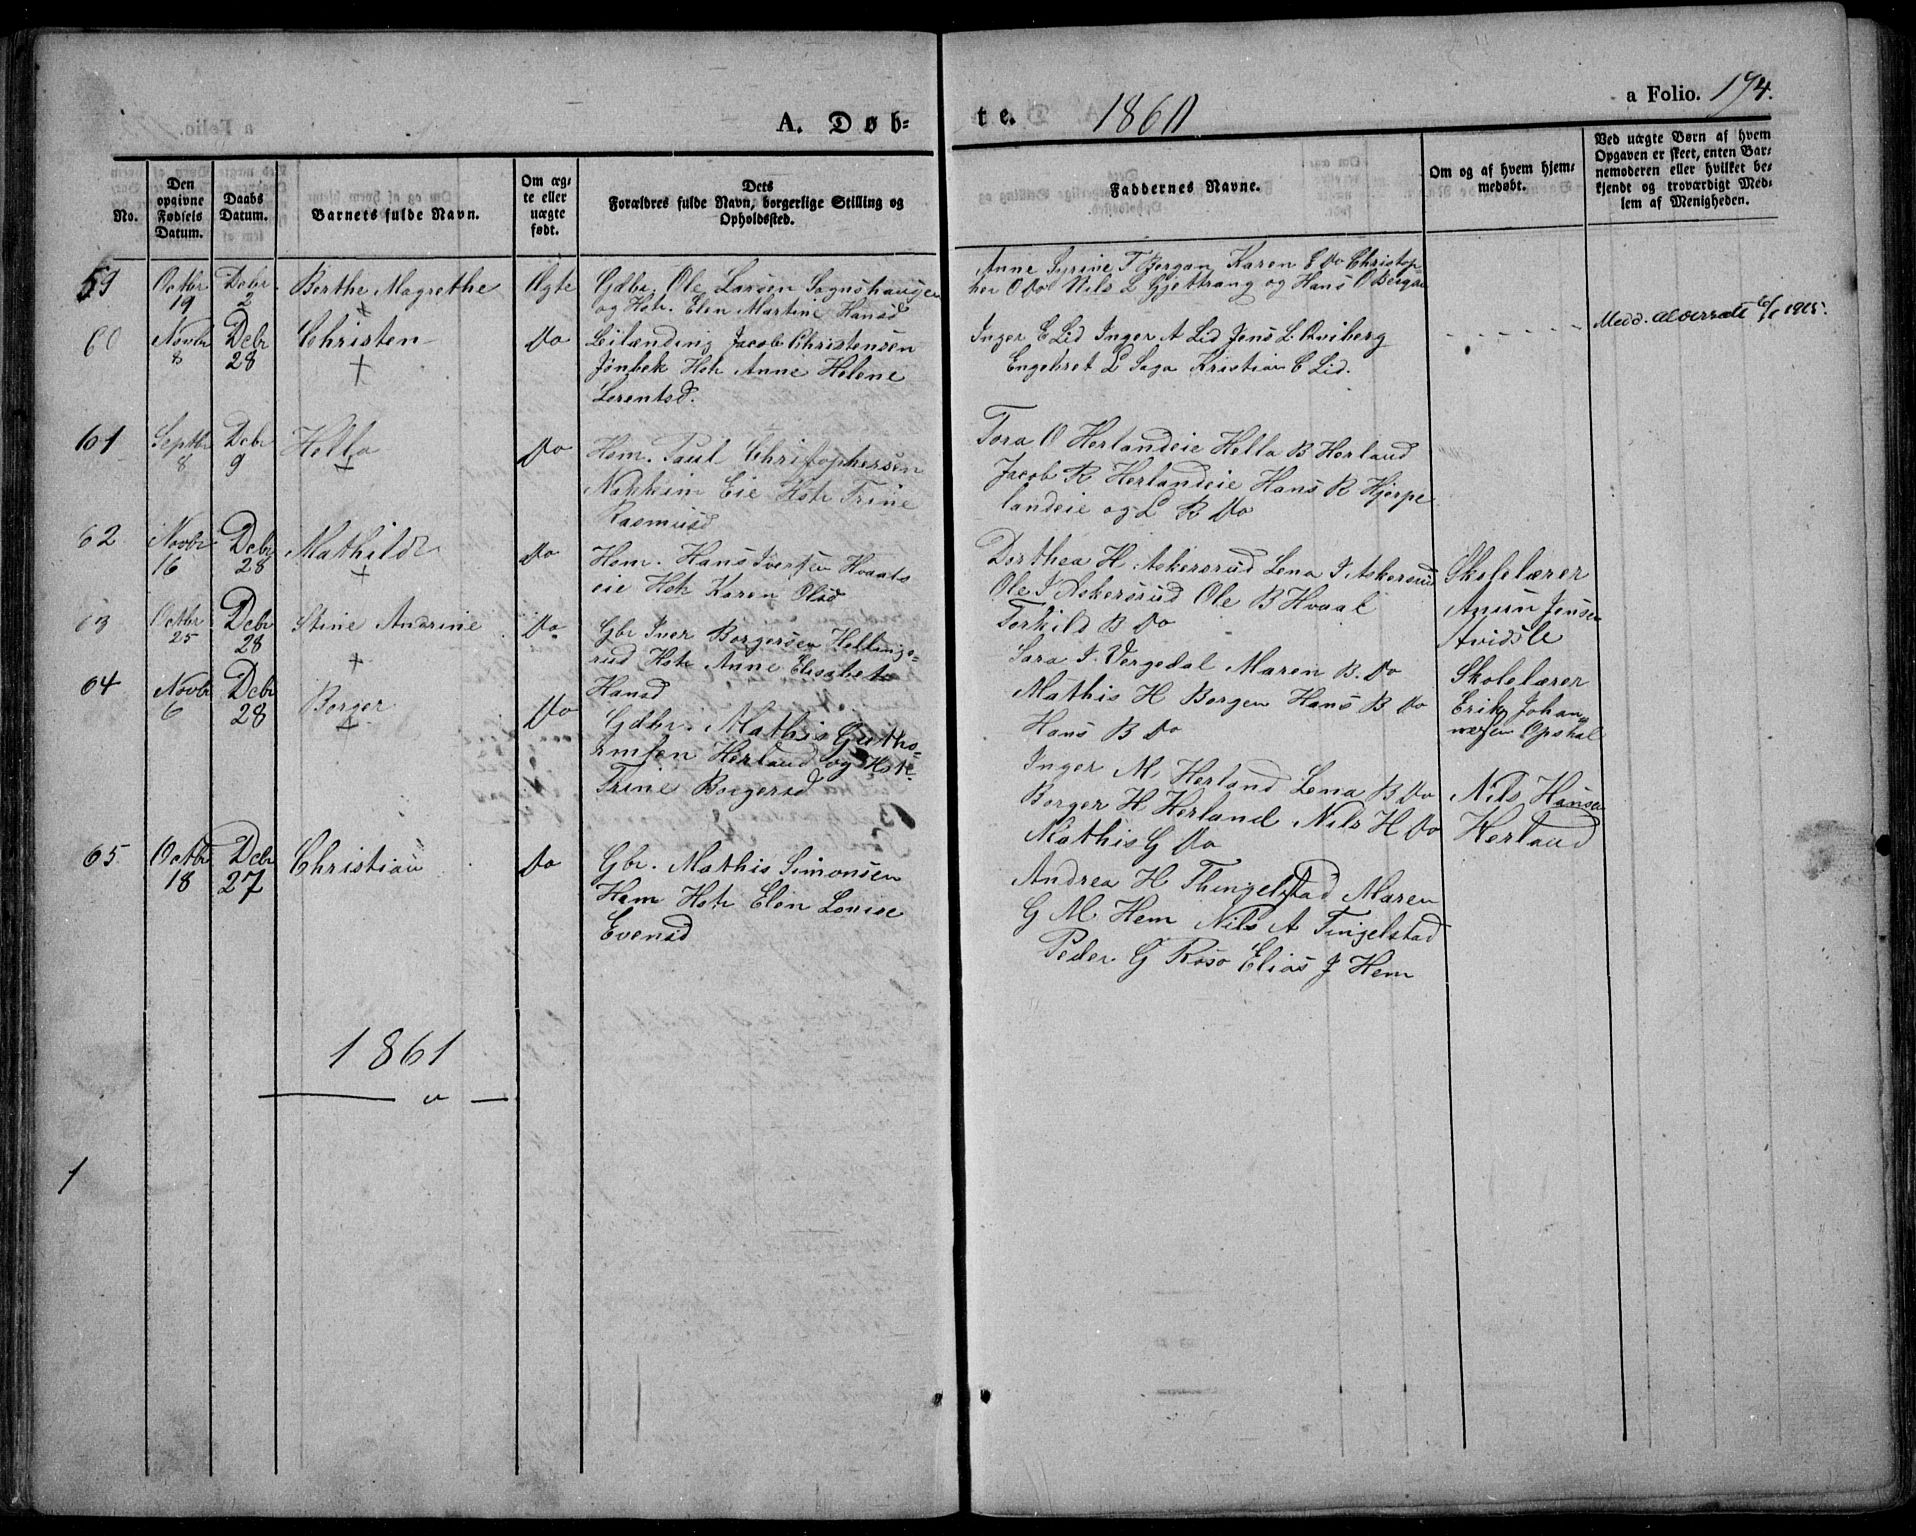 A. Døb-
te. 1860
a Folio. 194.
No.
Den
opgivne
Fødsels
Datum.
Daabs
Datum.
Barnets fulde Navn.
Om æg-
te eller
uægte
født.
Dets
Forældres fulde Navn, borgerlige Stilling og
Opholdssted.
Faddernes Navne.
Om og af hvem hjem-
medøbt.
Ved uægte Børn af hvem
Opgaven er skeet, enten Bar-
nemoderen eller hvilket be-
kjendt og troværdigt Med-
lem af Menigheden.
59
Octbr
19
Decbr
2
Berthe Magrethe
+
Ægte
Gdbr. Ole Larsen Sognshaugen
og Hstr. Elen Martine Hansd
Anne Syrine T Bergan Karen E Do Christop-
her O Do Nils L Gjettrang og Hans O Bergan
60
Novbr
8
Dcbr
28
Christen
+
Do
Leilænding Jacob Christensen
Jønbek Hstr Anne Helene
Lorentsd.
Inger E Lid Inger A Lid Jens L Qviberg
Engebret L Saga Kristian C Lid.
Medd. 6/1 1905.
61
Septbr
8
Dcbr
9
Hella
+
Do
Hsm. Paul Christophersen
Nakkim Eie Hstr Trine
Rasmusd
Tora O Herlandeie Hella B Herland
Jacob R Herlandeie Hans R Hjerpe
landeie og L R Do
62
Novbr
16
Dcbr
28
Mathilde
+
Do
Hsm. Hans Iversen Hvaals
eie Hstr Karen Olsd
Dorthea H Askersrud Lena I Askersrud
Ole I Askersrud Ole B Hvaal
Torkild B Do
Skolelærer
Jensen
63
Octbr
25
Dcbr
28
Stine Andrine
+
Do
Gbr Iver Borgersen Hellings-
rud Hstr Anne Elisabeth
Hansd
Sara I. Vergedal Maren B. Do
Mathis H Borgen Hans B Do
Hans B Do
Skolelærer
Erik Johan
nesen Opsahl
64
Novbr
6
Dcbr
28
Borger
+
Do
Gdbr. Mathis Gutho-
rmsen Herland og Hstr.
Trine Borgersd
Inger M. Herland Lena B Do
Borger H Herland Nils H Do
Mathis G Do
Nils Hansen
Herland
65
Octbr
18
Dcbr
27
Christian
Do
Gbr. Mathis Simonsen
Hem Hstr Elen Lovise
Evensd
Andrea H Thingelstad Maren
G M Hem Nils A Tingelstad
Peder G Røso Elias J Hem
1861
1